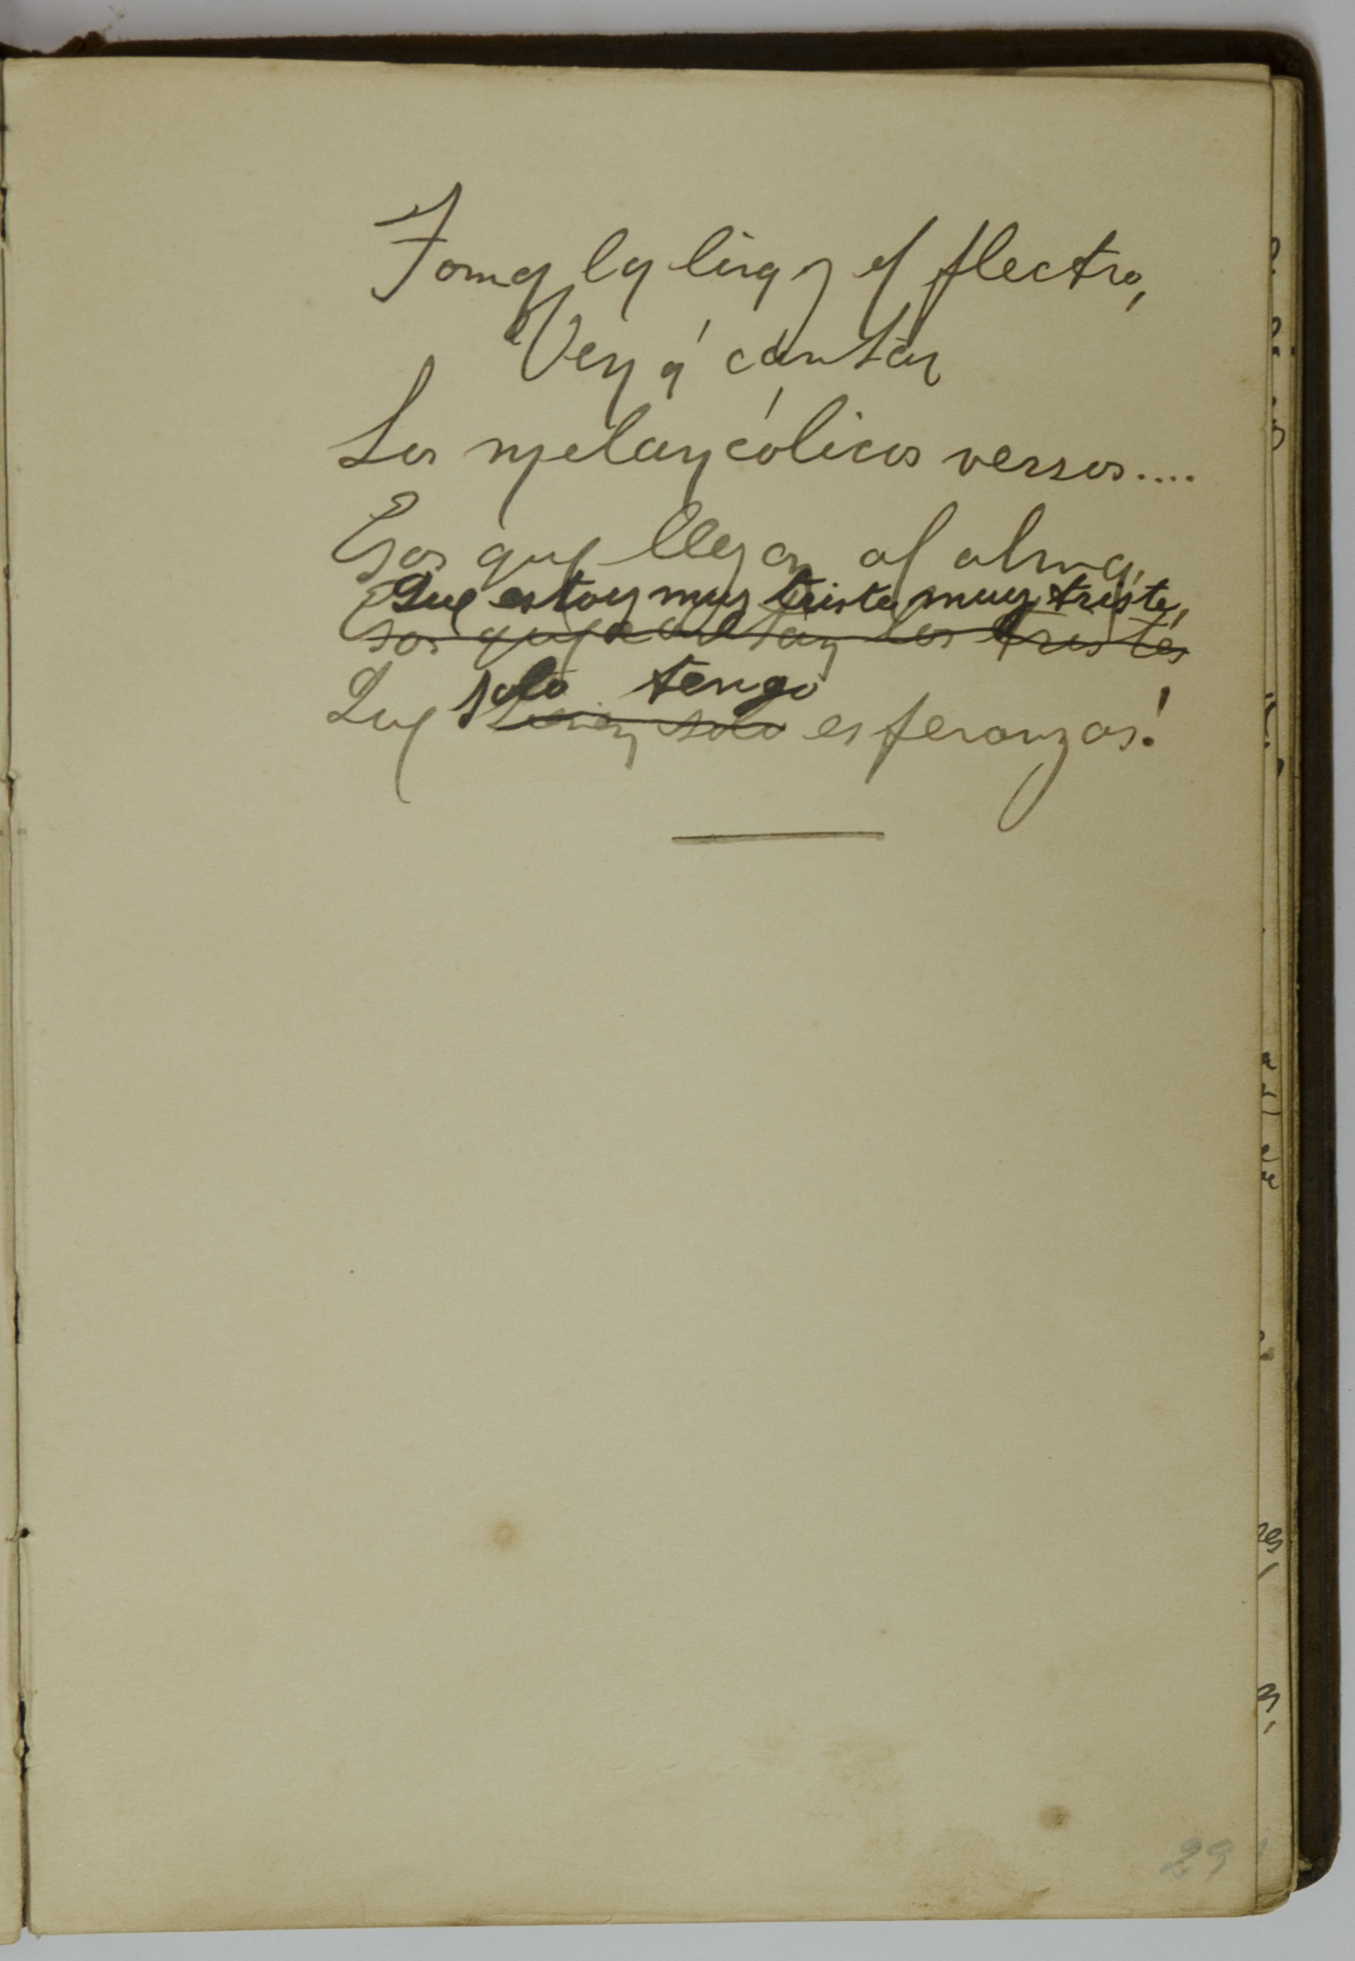 Toma la lira y el plectro,
Ven á cantar
Los melancólicos versos....
Esos que llegan al alma,
Que estoy muy triste, muy triste,
Esos que los tristes
Que solo tengo
solo esperanzas!
29